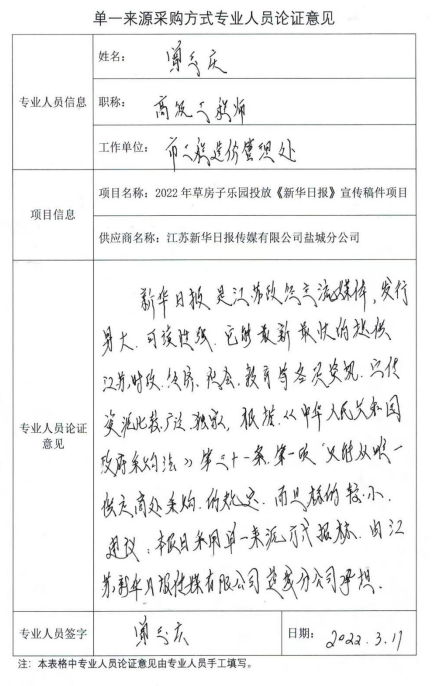 单一来源采购方式专业人员论证意见
专业人员信息
姓名：
职称：高级工程师
工作单位：市工程造价管理处
项目信息
项目名称：2022年草房子乐园投放《新华日报》宣传稿件项目
供应商名称：江苏新华日报传媒有限公司盐城分公司
专业人员论证意见
新华日报是江苏政 主流媒体，发行
量大、可读性强，它能最新最快的提供
江苏时政、经济、社会、教育等各类资讯，宣传
资源比较广泛、独家，根据《中华人民共和国
政府采购法》第三十一条，第一项“只能从唯一
供应商处采购”的规定，而且标的较小，
建议：本项目采用单一来源方式招标，由江
苏新华日报传媒有限公司盐城分公司承担。
专业人员签字
日期：2022.3.17
注：本表格中专业人员论证意见由专业人员手工填写。